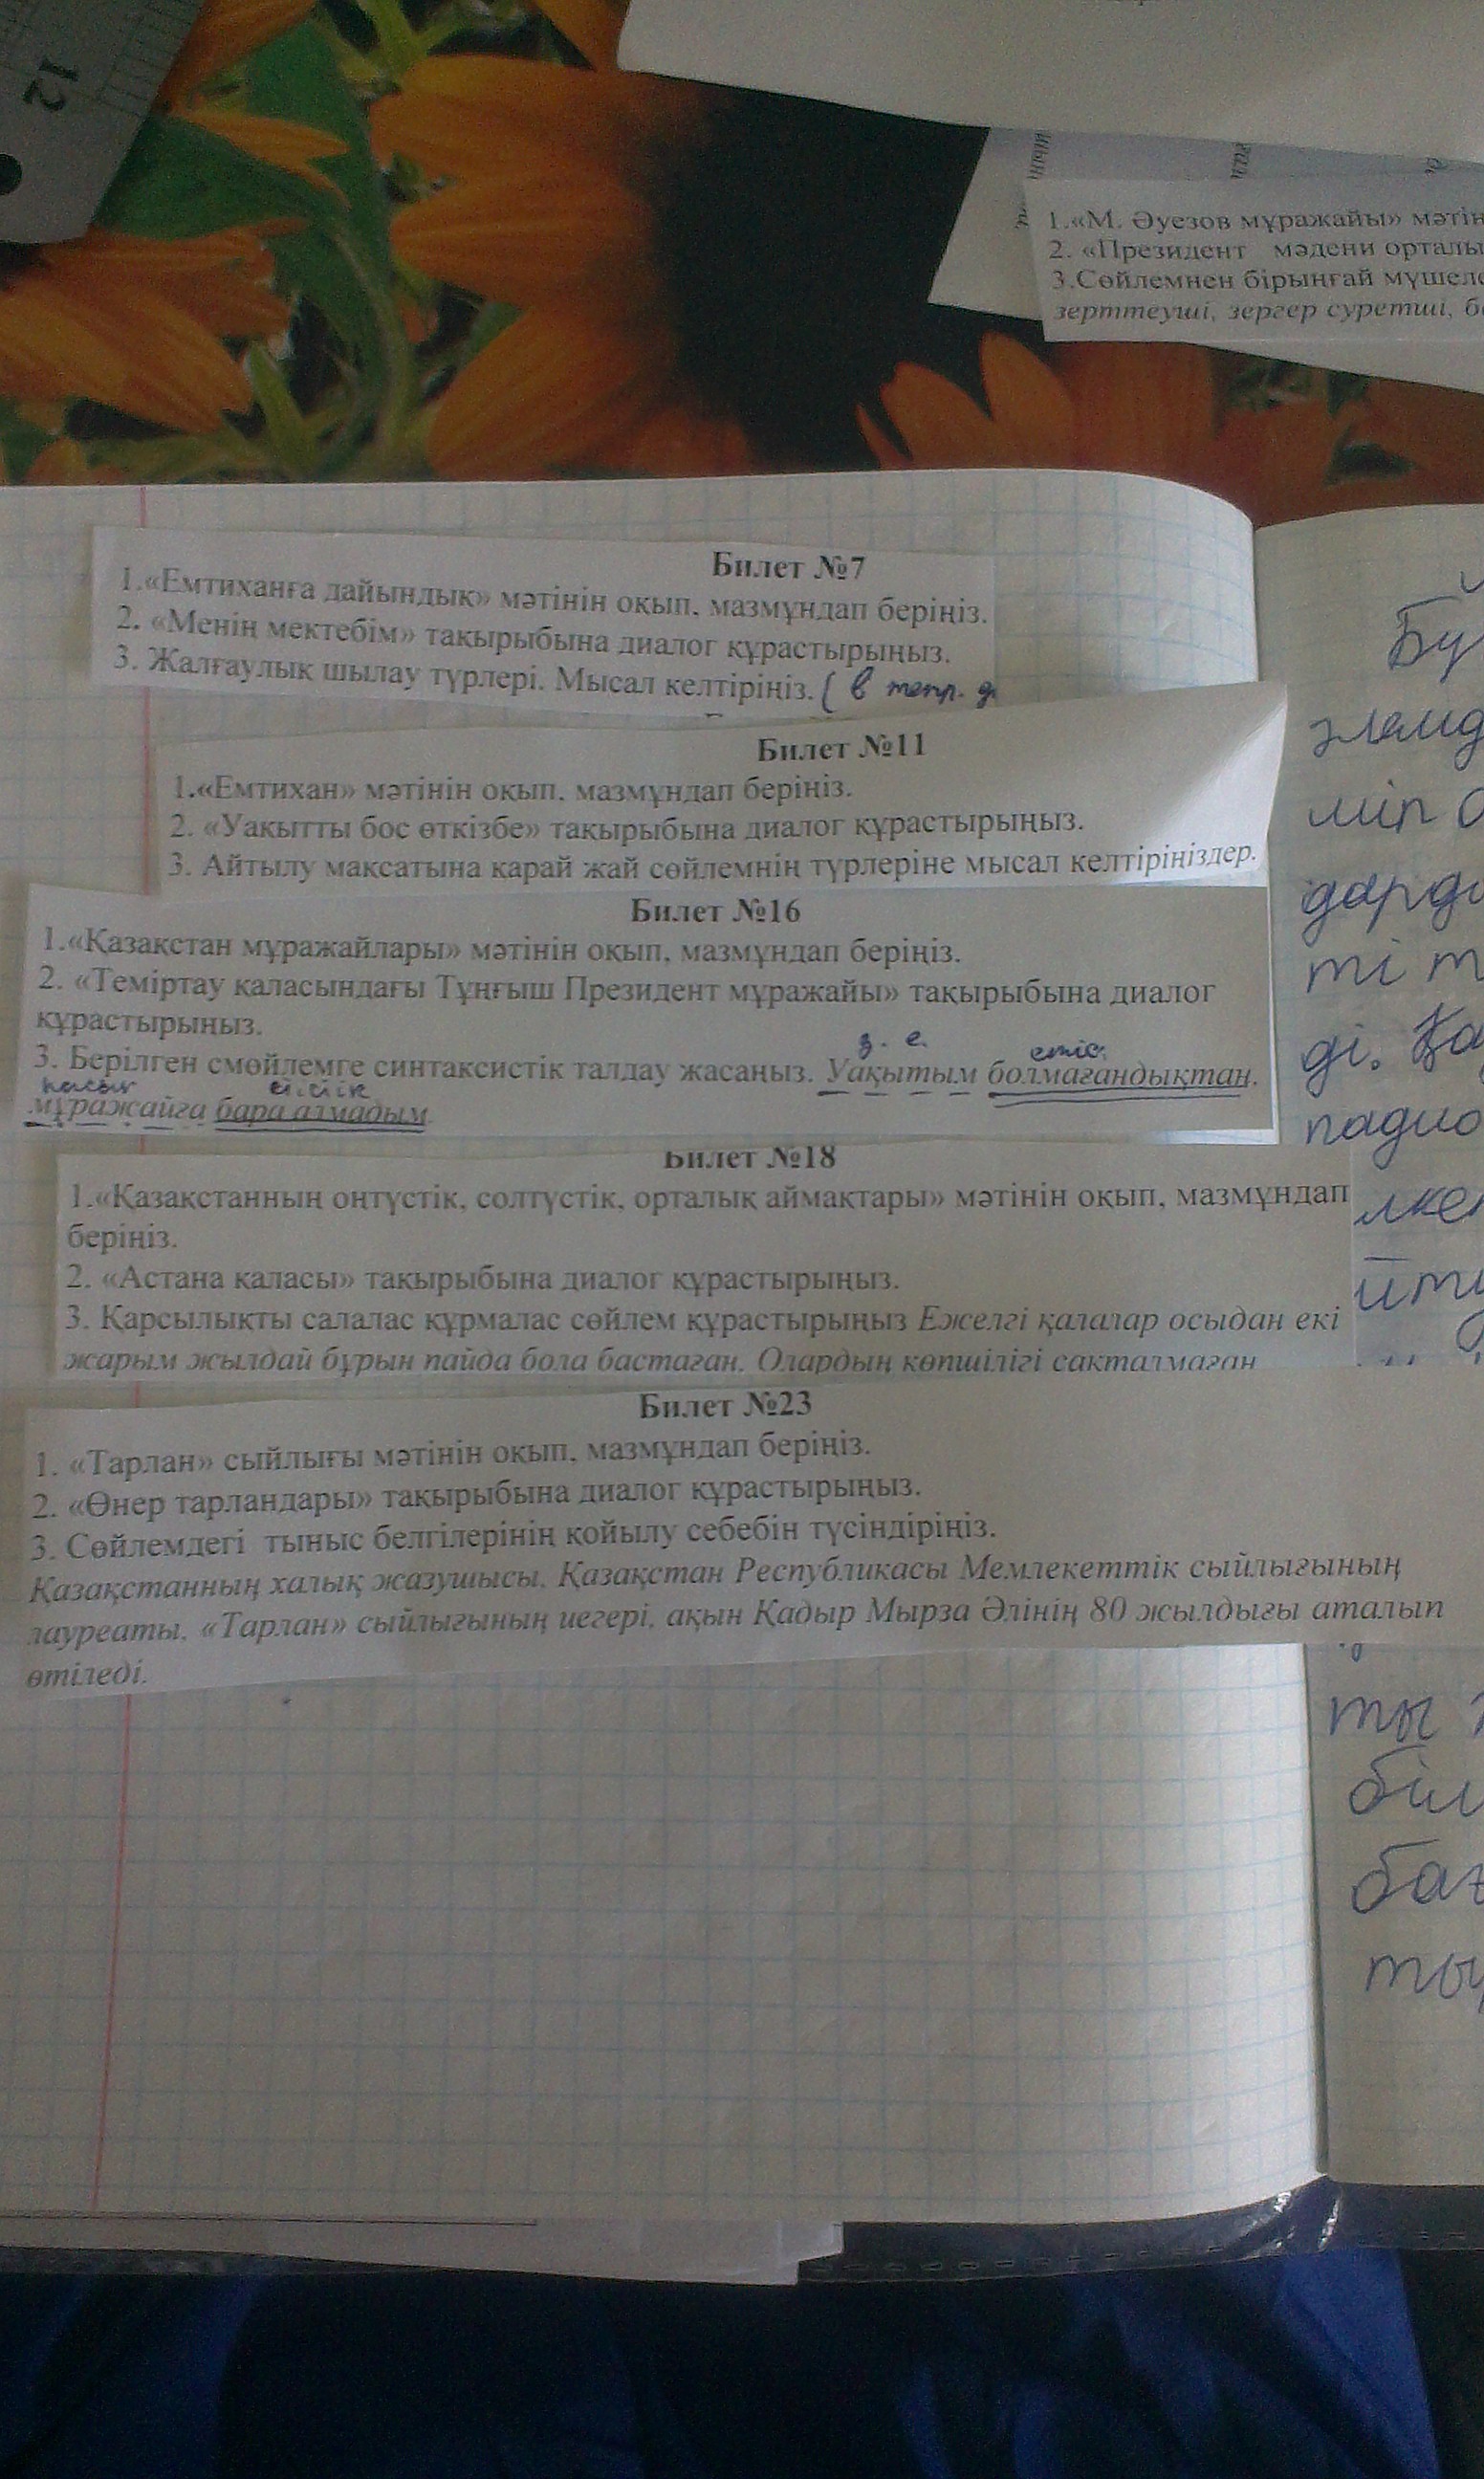 12
1.«М. Әуезов мұражайы» мәтін
2. «Президент мәдени орталы
3.Сөйлемнен бірыңғай мүшеле
зерттеуші, зергер суретші, б
Билет №7
1.«Емтиханға дайындық» мәтінін оқып, мазмұндап беріңіз.
2. «Менің мектебім» тақырыбына диалог құрастырыңыз.
3. Жалғаулық шылау түрлері. Мысал келтіріңіз. ( в тетр.
Билет №11
1.«Емтихан» мәтінін оқып, мазмұндап беріңіз.
2. «Уақытты бос өткізбе» тақырыбына диалог құрастырыңыз.
3. Айтылу мақсатына қарай жай сөйлемнің түрлеріне мысал келтіріңіздер.
Билет №16
1.«Қазақстан мұражайлары» мәтінін оқып, мазмұндап беріңіз.
2. «Теміртау қаласындағы Тұңғыш Президент мұражайы» тақырыбына диалог
құрастырыңыз.
з. е. етіс.
3. Берілген смөйлемге синтаксистік талдау жасаңыз. Уақытым болмағандықтан,
мұражайға бара алмадым.
Билет №18
1.«Қазақстанның оңтүстік, солтүстік, орталық аймақтары» мәтінін оқып, мазмұндап
беріңіз.
2. «Астана қаласы» тақырыбына диалог құрастырыңыз.
3. Қарсылықты салалас құрмалас сөйлем құрастырыңыз Ежелгі қалалар осыдан екі
жарым жылдай бұрын пайда бола бастаған. Олардың көпшілігі сақталмаған
Билет №23
1. «Тарлан» сыйлығы мәтінін оқып, мазмұндап беріңіз.
2. «Өнер тарландары» тақырыбына диалог құрастырыңыз.
3. Сөйлемдегі тыныс белгілерінің қойылу себебін түсіндіріңіз.
Қазақстанның халық жазушысы, Қазақстан Республикасы Мемлекеттік сыйлығының
лауреаты, «Тарлан» сыйлығының иегері, ақын Қадыр Мырза Әлінің 80 жылдығы аталып
өтіледі.
Бү
әлемд
мір
дард
ті т
ді. Қа
падио
лке
йту
ты
біл
бағ
ты